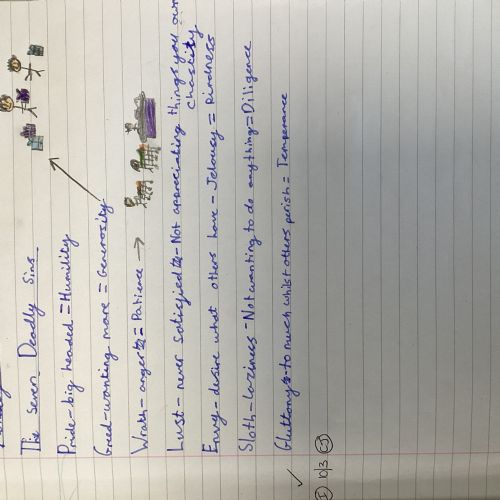 The Seven Deadly Sins
Pride - big headed = Humility
Greed - wanting more = Generosity
Wrath - anger = Patience →
Lust - never satisfied - Not appreciating things you own
chastity
Envy - desire what others have - Jelousy = Kindness
Sloth - laziness - Not wanting to do anything = Diligence
Gluttony - to much whilst others perish = Temperance